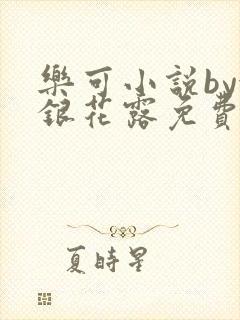 樂可小説by
銀花露免費
夏時星